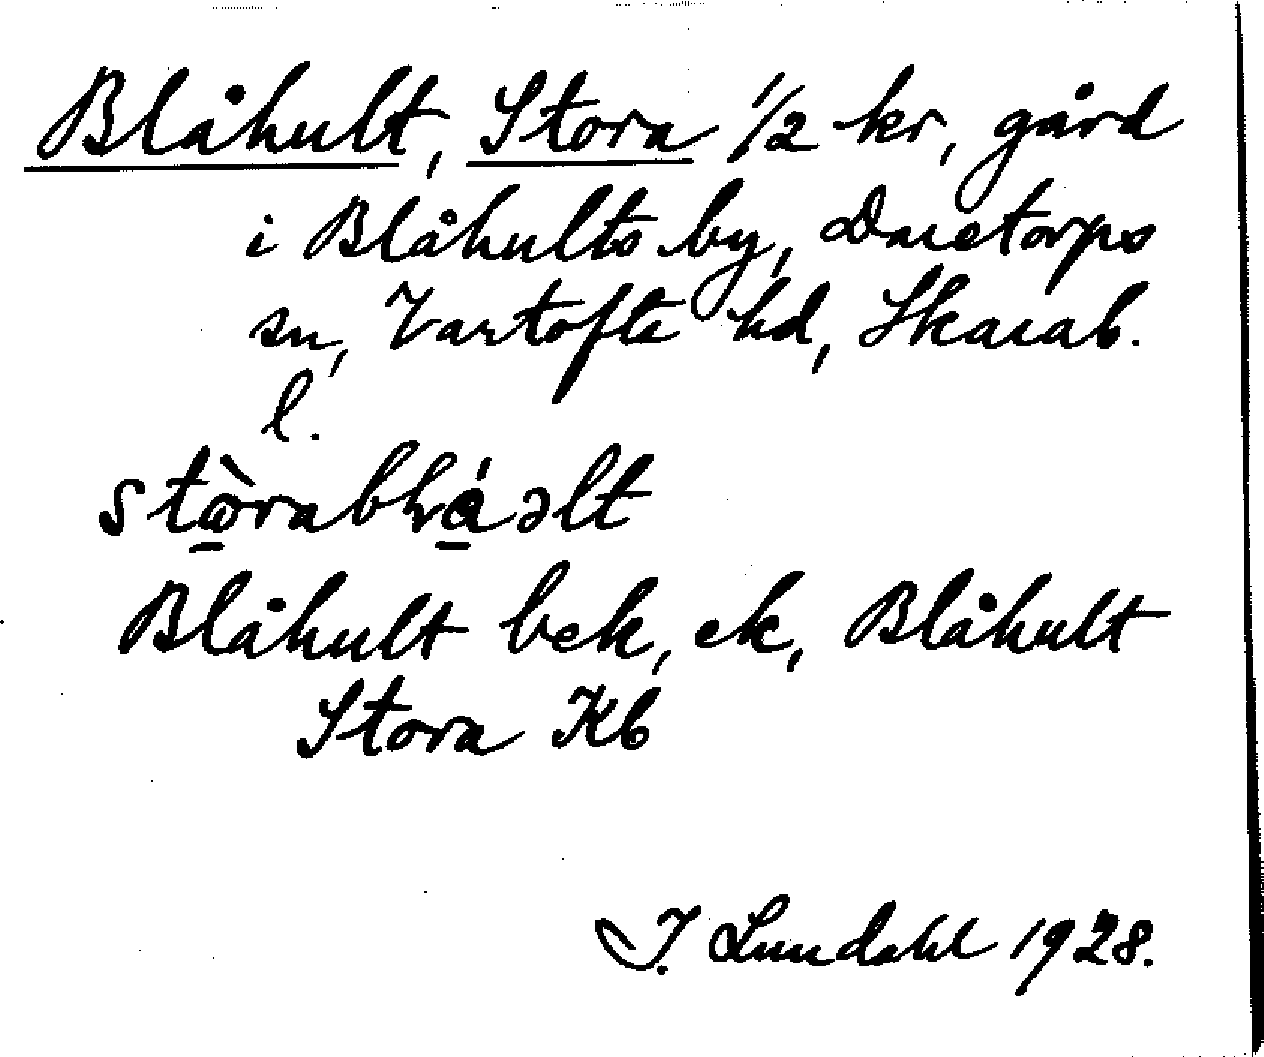 Blåhult, Stora 1/2 kr, gård
i Blåhults by, Daretorps
sn, Vartofte hd, Skarab.
l.
Blåhult bek, ek, Blåhult
Stora Kb
I. Lundahl 1928.